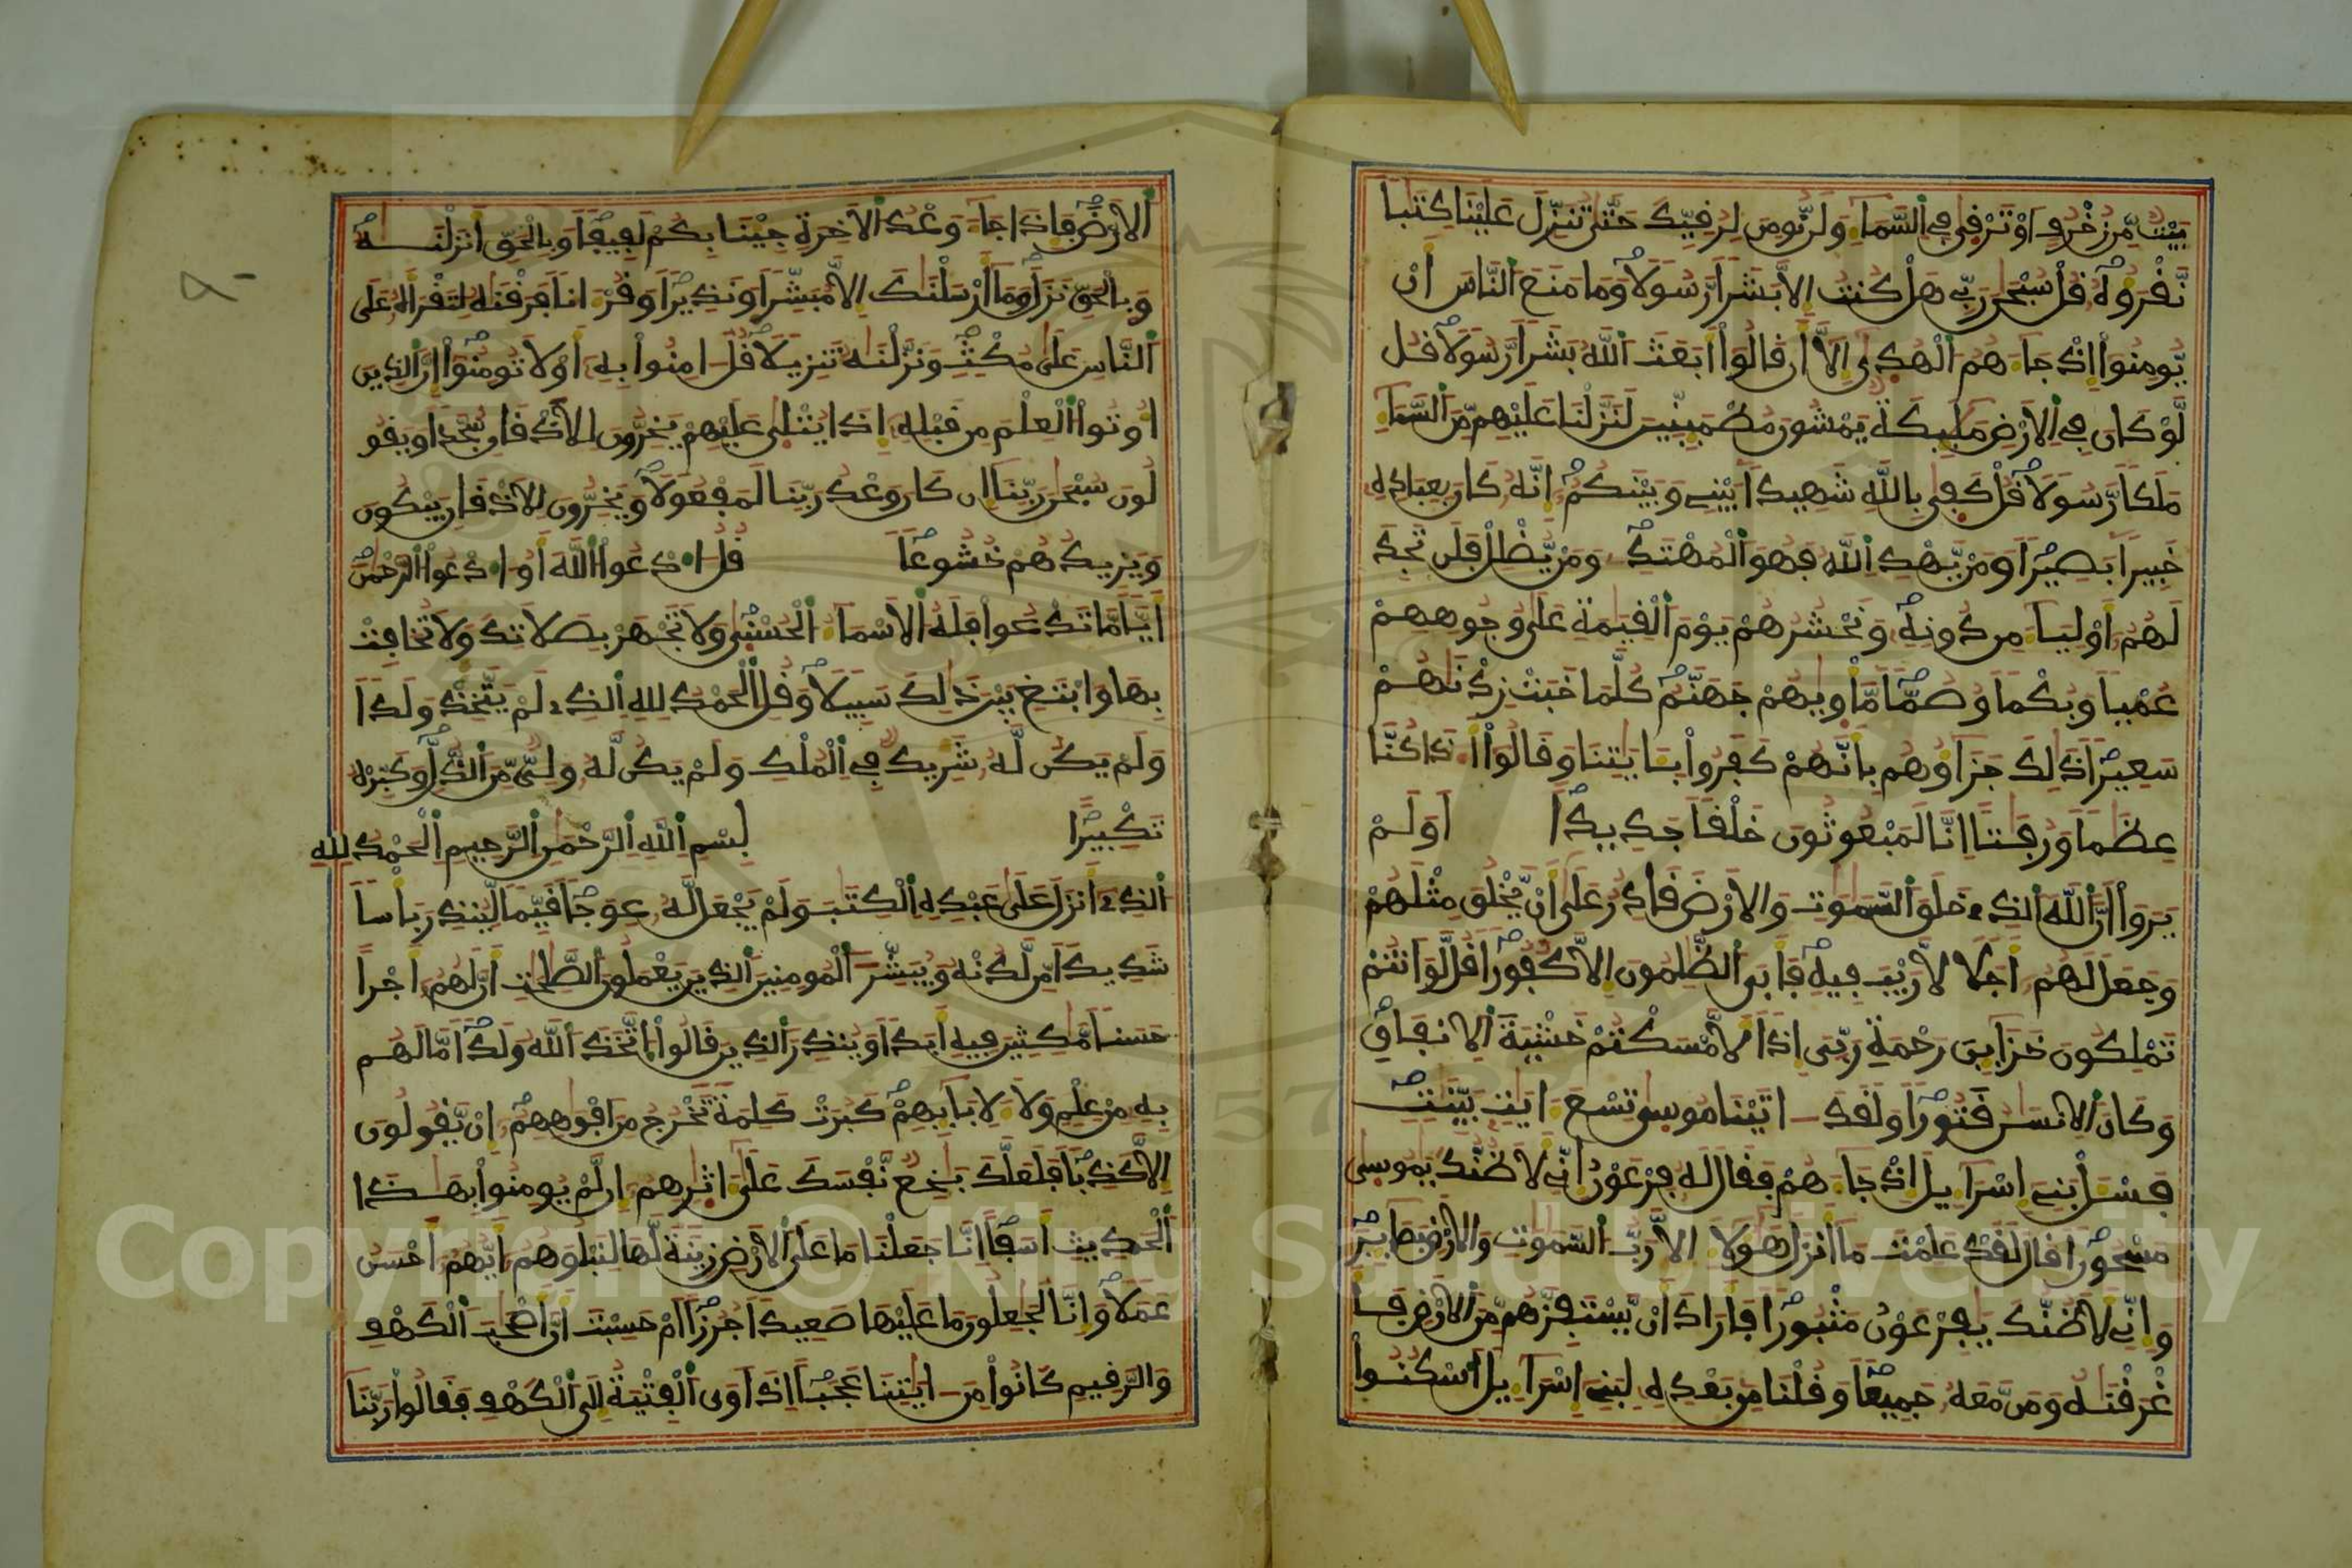 بَيْتٌ مِّن زُخْرُفٍ أَوْ تَرْفِىٰ فِي السَّمَاءِ وَلَن نُّومِنَ لِرُفِيِّكَ حَتَّىٰ تُنَزِّلَ عَلَيْنَا كِتَٰبًا
نَّفْرَؤُهُ فُلْ سُبْحَٰنَ رَبِّي هَلْ كُنتُ إِلَّا بَشَرًا رَّسُولًا وَمَا مَنَعَ النَّاسَ أَنْ
يُّومِنُوا إِذْ جَاءَهُمُ الْهُدَىٰ إِلَّا أَن فَالُوا أَبَعَثَ اللَّهُ بَشَرًا رَّسُولًا فُل
لَّوْ كَانَ فِي الْأَرْضِ مَلَٰئِكَةٌ يَمْشُونَ مُطْمَئِنِّينَ لَنَزَّلْنَا عَلَيْهِم مِّنَ السَّمَاءِ
مَلَكًا رَّسُولًا فُلْ كَفِىٰ بِاللَّهِ شَهِيدًا بَيْنِي وَبَيْنَكُمْ إِنَّهُ كَانَ بِعِبَادِهِ
خَبِيرًا بَصِيرًا وَمَنْ يَّهْدِ اللَّهُ فَهُوَ الْمُهْتَدِ وَمَنْ يُّضْلِلْ فَلَن تَجِدَ
لَهُمُ أَوْلِيَاءَ مِن دُونِهِ وَنَحْشُرُهُمْ يَوْمَ الْفِيَٰمَةِ عَلَىٰ وُجُوهِهِمْ
عُمْيًا وَبُكْمًا وَصُمًّا مَّأْوِيٰهُمْ جَهَنَّمُ كُلَّمَا خَبَتْ زِدْنَٰهُمْ
سَعِيرًا ذَٰلِكَ جَزَاؤُهُم بِأَنَّهُمْ كَفَرُوا بِـَٔايَٰتِنَا وَفَالُوا أَ۟ذَا كُنَّا
عِظَٰمًا وَرُفَٰتًا إِنَّا لَمَبْعُوثُونَ خَلْفًا جَدِيدًا أَوَلَمْ
يَرَوْا أَنَّ اللَّهَ الَّذِي خَلَقَ السَّمَٰوَٰتِ وَالْأَرْضَ فَادِرٌ عَلَىٰ أَنْ يَّخْلُقَ مِثْلَهُمْ
وَجَعَلَ لَهُمُ أَجَلًا لَّا رَيْبَ فِيهِ فَأَبَى الظَّٰلِمُونَ إِلَّا كُفُورًا فُل لَّوَ أَنتُمْ
تَمْلِكُونَ خَزَائِنَ رَحْمَةِ رَبِّيَ إِذًا لَّأَمْسَكْتُمْ خَشْيَةَ الْإِنفَاقِ
وَكَانَ الْإِنسَٰنُ فَتُورًا وَلَفَدَ ـاتَيْنَا مُوسَىٰ تِسْعَ ءَايَٰتٍ بَيِّنَٰتٍ
فَسْـَٔلْ بَنِي إِسْرَاءِيلَ إِذْ جَاءَهُمْ فَفَالَ لَهُ فِرْعَوْنُ إِنِّي لَأَظُنُّكَ يَٰمُوسَىٰ
مَسْحُورًا فَالَ لَفَدْ عَلِمْتَ مَا أَنزَلَ هَٰؤُلَاءِ إِلَّا رَبُّ السَّمَٰوَٰتِ وَالْأَرْضِ بَصَائِرَ
وَإِنِّي لَأَظُنُّكَ يَٰفِرْعَوْنُ مَثْبُورًا فَأَرَادَ أَنْ يَّسْتَفِزَّهُم مِّنَ الْأَرْضِ فَأَ
غْرَفْنَٰهُ وَمَن مَّعَهُ جَمِيعًا وَفُلْنَا مِن بَعْدِهِ لِبَنِي إِسْرَاءِيلَ اسْكُنُوا
الْأَرْضَ فَإِذَا جَاءَ وَعْدُ الْأَخِرَةِ جِئْنَا بِكُمْ لَفِيفًا وَبِالْحَقِّ أَنزَلْنَٰهُ
وَبِالْحَقِّ نَزَلَ وَمَا أَرْسَلْنَٰكَ إِلَّا مُبَشِّرًا وَنَذِيرًا وَفُرْءَانًا فَرَفْنَٰهُ لِتَفْرَأَهُ عَلَى
النَّاسِ عَلَىٰ مُكْثٍ وَنَزَّلْنَٰهُ تَنزِيلًا فُلَ ـامِنُوا بِهِ أَوْ لَا تُومِنُوا إِنَّ الَّذِينَ
أُوتُوا الْعِلْمَ مِن فَبْلِهِ إِذَا يُتْلَىٰ عَلَيْهِمْ يَخِرُّونَ لِلْأَذْفَانِ سُجَّدًا وَيَفُو
لُونَ سُبْحَٰنَ رَبِّنَا إِن كَانَ وَعْدُ رَبِّنَا لَمَفْعُولًا وَيَخِرُّونَ لِلْأَذْفَانِ يَبْكُونَ
وَيَزِيدُهُمْ خُشُوعًا فُلُ ادْعُوا اللَّهَ أَوُ ادْعُوا الرَّحْمَٰنَ
أَيًّا مَّا تَدْعُوا فَلَهُ الْأَسْمَاءُ الْحُسْنَىٰ وَلَا تَجْهَرْ بِصَلَاتِكَ وَلَا تُخَافِتْ
بِهَا وَابْتَغِ بَيْنَ ذَٰلِكَ سَبِيلًا وَفُلِ الْحَمْدُ لِلهِ الَّذِي لَمْ يَتَّخِذْ وَلَدًا
وَلَمْ يَكُن لَّهُ شَرِيكٌ فِي الْمُلْكِ وَلَمْ يَكُن لَّهُ وَلِيٌّ مِّنَ الذُّلِّ وَكَبِّرْهُ
تَكْبِيرًا بِسْمِ اللَّهِ الرَّحْمَٰنِ الرَّحِيمِ الْحَمْدُ لِلهِ
الَّذِي أَنزَلَ عَلَىٰ عَبْدِهِ الْكِتَٰبَ وَلَمْ يَجْعَل لَّهُ عِوَجًا فَيِّمًا لِّيُنذِرَ بَأْسًا
شَدِيدًا مِّن لَّدُنْهُ وَيُبَشِّرَ الْمُومِنِينَ الَّذِينَ يَعْمَلُونَ الصَّٰلِحَٰتِ أَنَّ لَهُمُ أَجْرًا
حَسَنًا مَّٰكِثِينَ فِيهِ أَبَدًا وَيُنذِرَ الَّذِينَ فَالُوا اتَّخَذَ اللَّهُ وَلَدًا مَّا لَهُم
بِهِ مِنْ عِلْمٍ وَلَا لِأَبَائِهِمْ كَبُرَتْ كَلِمَةً تَخْرُجُ مِنَ أَفْوَٰهِهِمُ إِنْ يَّفُولُونَ
إِلَّا كَذِبًا فَلَعَلَّكَ بَٰخِعٌ نَّفْسَكَ عَلَىٰ ءَاثَٰرِهِمُ إِن لَّمْ يُومِنُوا بِهَٰذَا
الْحَدِيثِ أَسَفًا إِنَّا جَعَلْنَا مَا عَلَى الْأَرْضِ زِينَةً لَّهَا لِنَبْلُوَهُمُ أَيُّهُمُ أَحْسَنُ
عَمَلًا وَإِنَّا لَجَٰعِلُونَ مَا عَلَيْهَا صَعِيدًا جُرُزًا أَمْ حَسِبْتَ أَنَّ أَصْحَٰبَ الْكَهْفِ
وَالرَّفِيمِ كَانُوا مِنَ ـايَٰتِنَا عَجَبًا إِذَ أَوَى الْفِتْيَةُ إِلَى الْكَهْفِ فَفَالُوا رَبَّنَا
Copyright © King Saud University